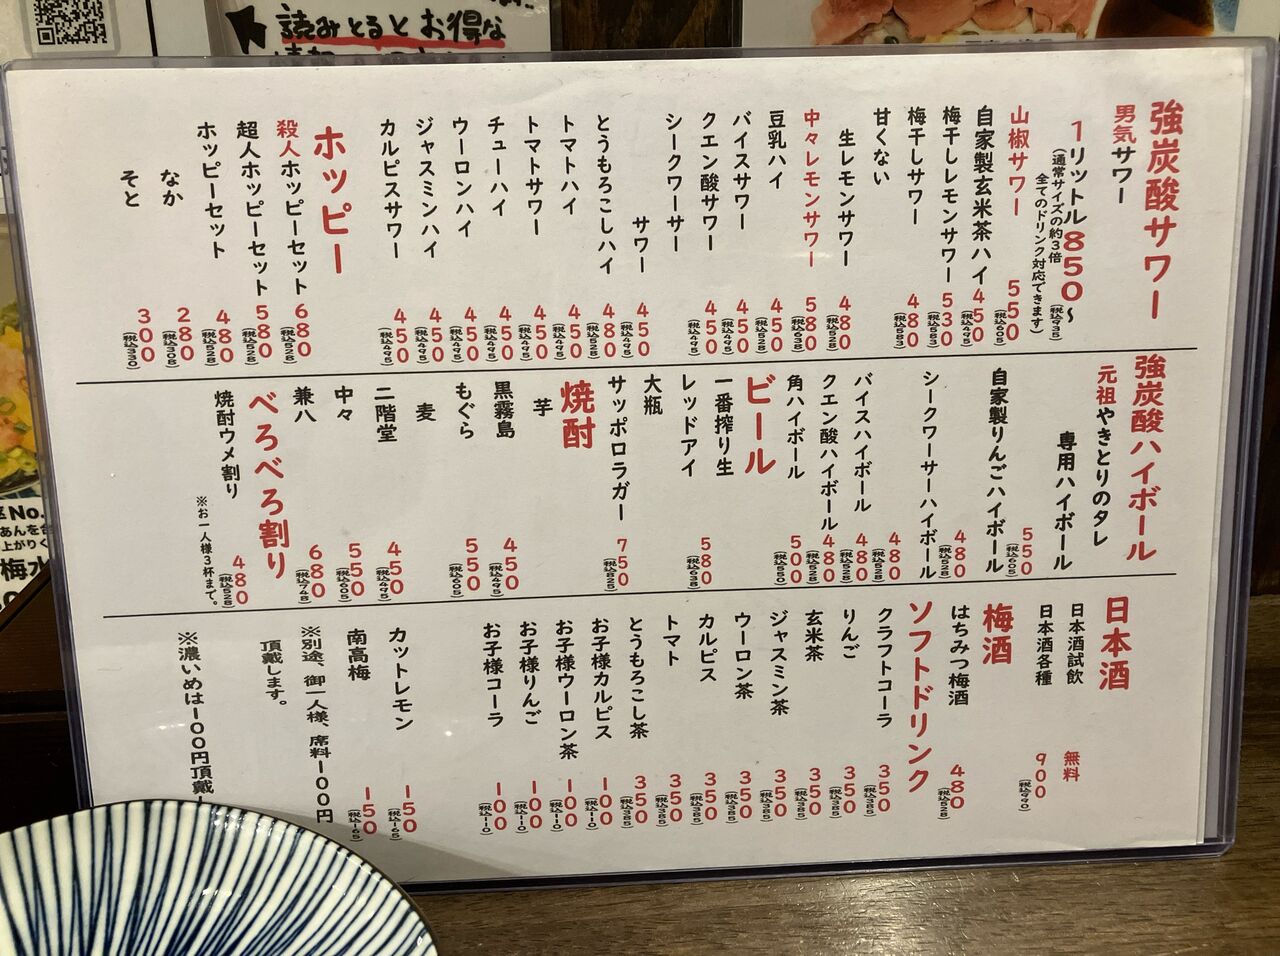 読みとるとお得な
強炭酸サワー
男気サワー
1リットル850〜
(税込935)
(通常サイズの約3倍
全てのドリンク対応できます)
山椒サワー 550 (税込605)
自家製玄米茶ハイ 450 (税込495)
梅干しレモンサワー 530 (税込583)
梅干しサワー 480 (税込583)
甘くない
生レモンサワー 480 (税込528)
中々レモンサワー 580 (税込638)
豆乳ハイ 450 (税込528)
バイスサワー 450 (税込495)
クエン酸サワー 450 (税込495)
シークワーサー
サワー 450 (税込495)
とうもろこしハイ 480 (税込528)
トマトハイ 450 (税込495)
トマトサワー 450 (税込495)
チューハイ 450 (税込495)
ウーロンハイ 450 (税込495)
ジャスミンハイ 450 (税込495)
カルピスサワー 450 (税込495)
ホッピー
殺人ホッピーセット 680 (税込528)
超人ホッピーセット 580 (税込528)
ホッピーセット 480 (税込528)
なか 280 (税込308)
そと 300 (税込330)
強炭酸ハイボール
元祖やきとりのタレ
専用ハイボール 550 (税込605)
自家製りんごハイボール
480 (税込528)
シークワーサーハイボール
480 (税込528)
バイスハイボール 480 (税込528)
クエン酸ハイボール 480 (税込528)
角ハイボール 500 (税込550)
ビール
一番搾り生
レッドアイ 580 (税込638)
大瓶
サッポロラガー 750 (税込825)
焼酎
芋
黒霧島 450 (税込495)
もぐら 550 (税込605)
麦
二階堂 450 (税込495)
中々 550 (税込605)
兼八 680 (税込748)
べろべろ割り
焼酎ウメ割り 480 (税込528)
※お一人様3杯まで。
日本酒
日本酒試飲 無料
日本酒各種 900 (税込990)
梅酒
はちみつ梅酒 480 (税込528)
ソフトドリンク
クラフトコーラ 350 (税込385)
りんご 350 (税込385)
玄米茶 350 (税込385)
ジャスミン茶 350 (税込385)
ウーロン茶 350 (税込385)
カルピス 350 (税込385)
トマト 350 (税込385)
とうもろこし茶 350 (税込385)
お子様カルピス 100 (税込110)
お子様ウーロン茶 100 (税込110)
お子様りんご 100 (税込110)
お子様コーラ 100 (税込110)
カットレモン 150 (税込165)
南高梅 150 (税込165)
※別途、御一人様、席料100円
頂戴します。
※濃いめは100円頂戴
No.
あんを
上がりく
梅水